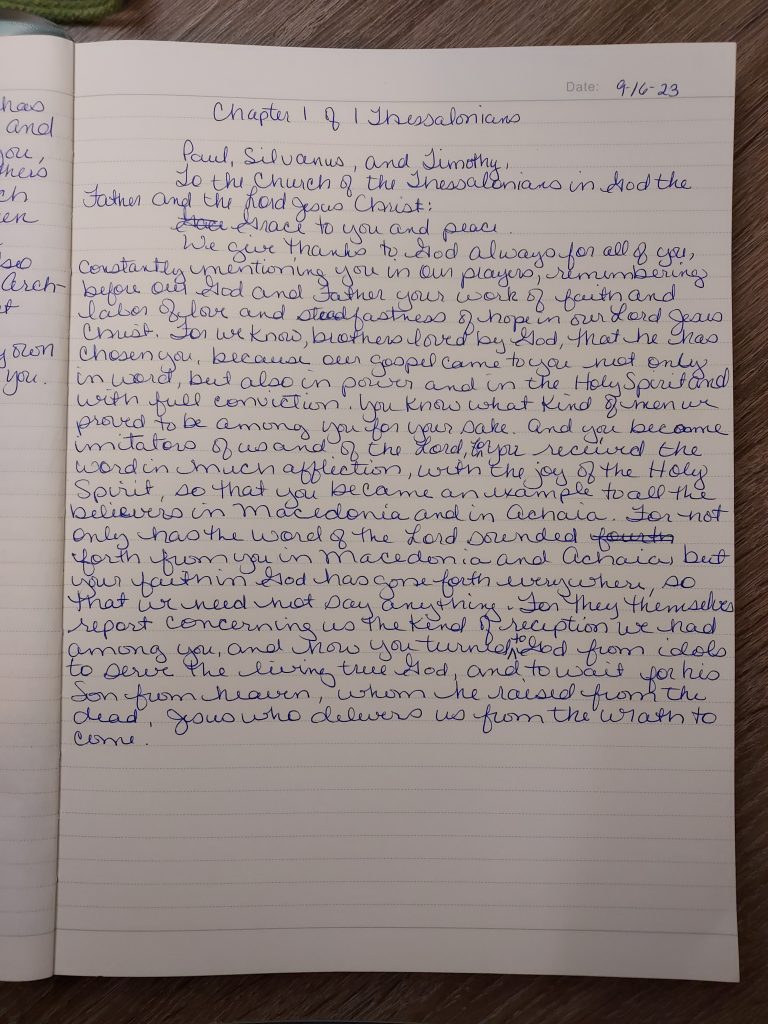 has
and
you,
thers
ch
en
so
Arch-
t
y own
you.
Date: 9-16-23
Chapter 1 of 1 Thessalonians
Paul, Silvanus, and Timothy,
To the Church of the Thessalonians in God the
Father and the Lord Jesus Christ:
Grace to you and peace.
We give thanks to God always for all of you,
constantly mentioning you in our prayers, remembering
before our God and Father your work of faith and
labor of love and steadfastness of hope in our Lord Jesus
Christ. For we know, brothers loved by God, that he has
chosen you, because our gospel came to you not only
in word, but also in power and in the Holy Spirit and
with full conviction. You know what kind of men we
proved to be among you for your sake. And you become
imitators of us and of the Lord, for you received the
word in much affliction, with the joy of the Holy
Spirit, so that you became an example to all the
believers in Macedonia and in Achaia. For not
only has the word of the Lord sounded fourth
forth from you in Macedonia and Achaia, but
your faith in God has gone forth everywhere, so
that we need not say anything. For they themselves
report concerning us the kind of reception we had
among you, and how you turned to God from idols
to serve the living true God, and to wait for his
Son from heaven, whom he raised from the
dead, Jesus who delivers us from the wrath to
come.